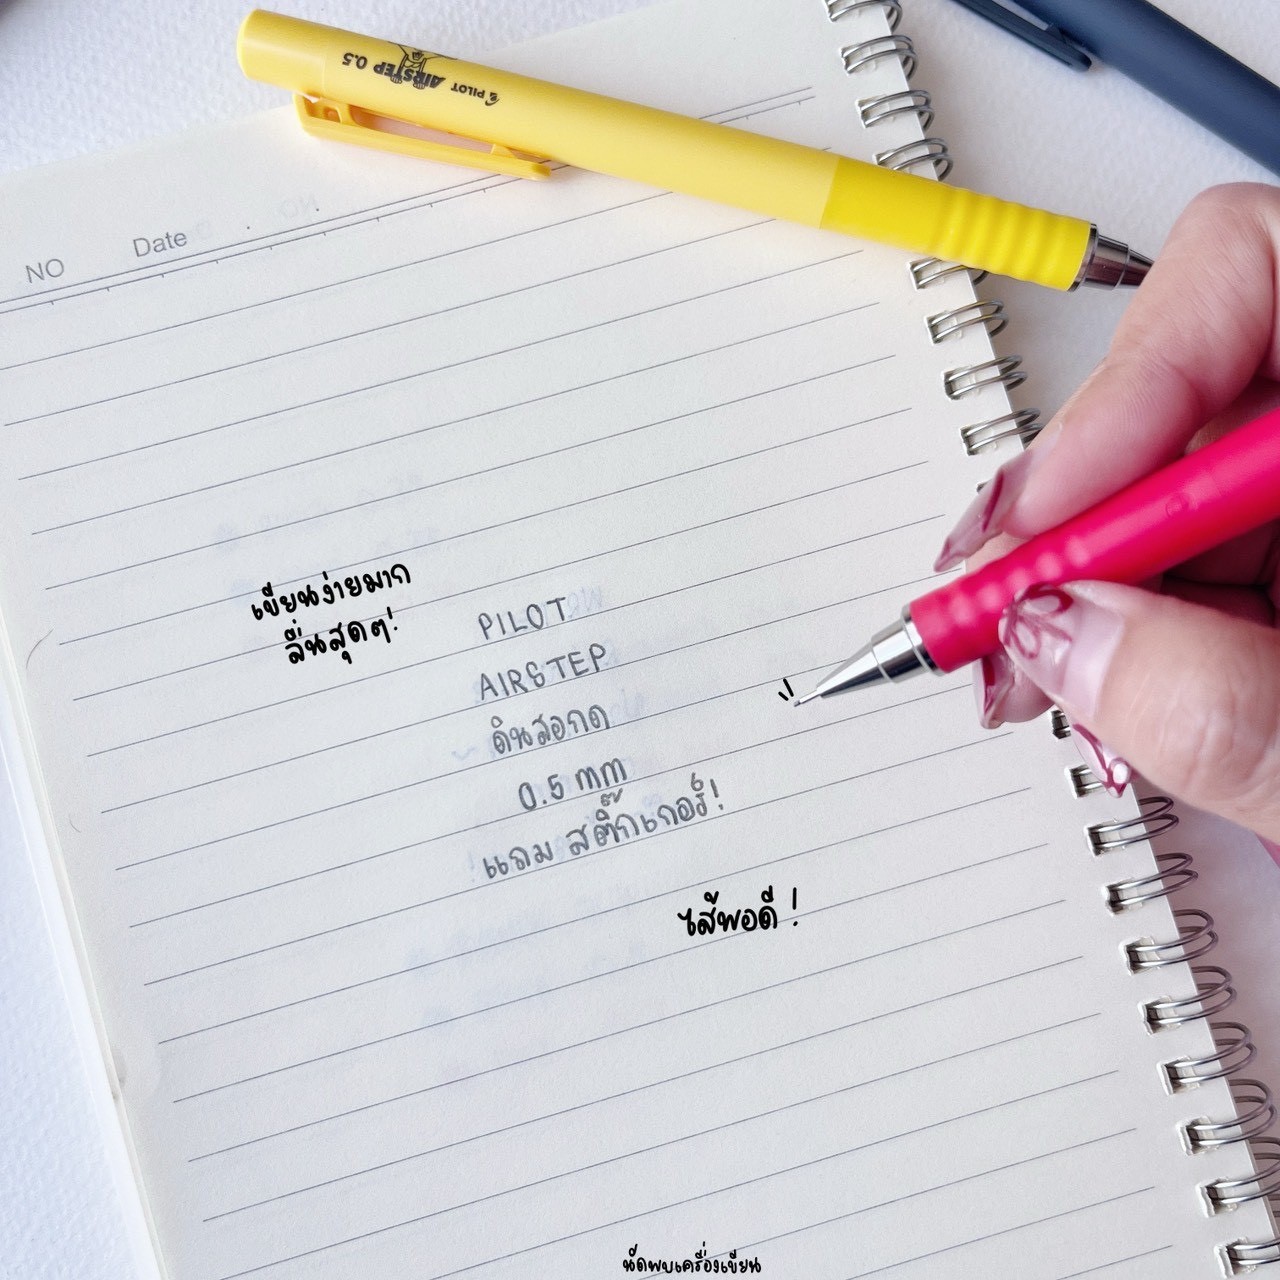 PILOT AIRSTEP 0.5
NO Date
เขียนง่ายมาก
ลื่นสุดๆ!
PILOT
AIRSTEP
ดินสอกด
0.5 mm
แถม สติ๊กเกอร์!
ไส้พอดี !
นัดพบเครื่องเขียน